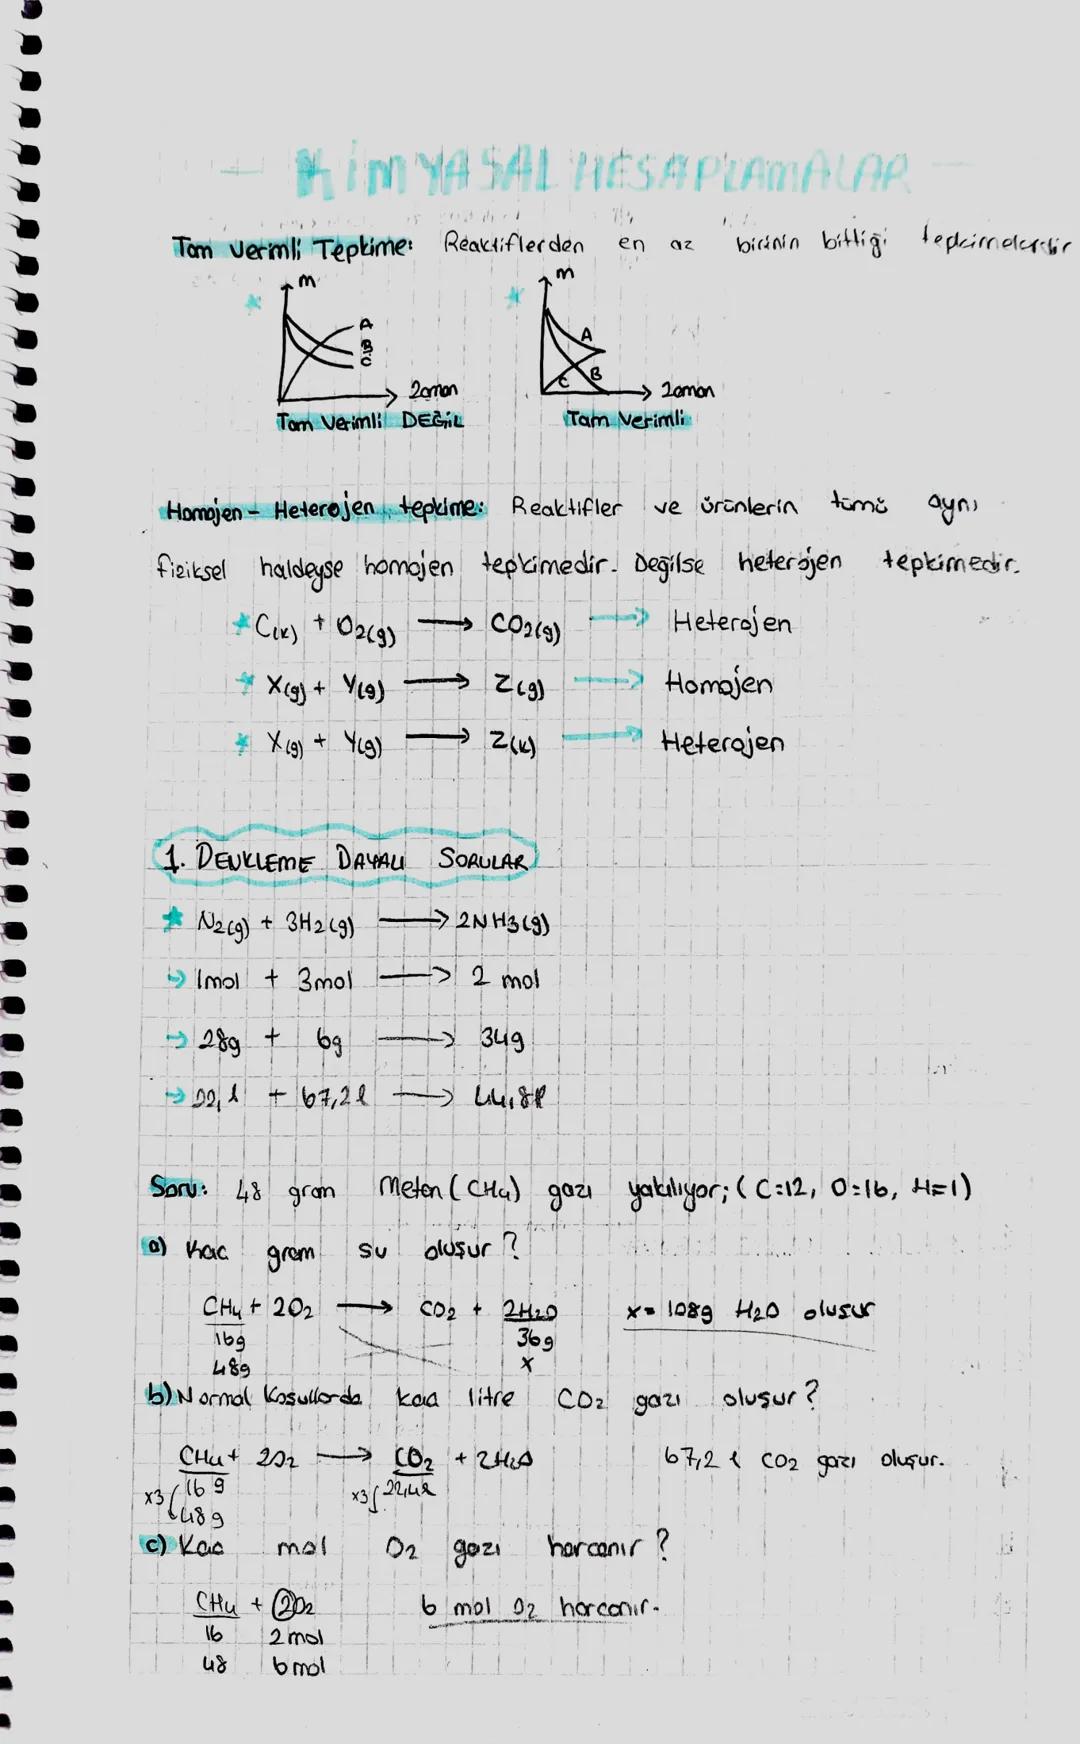 - KİMYASAL HESAPLAMALAR -
Tam Verimli Tepkime: Reaktiflerden en az birinin bittiği tepkimelerdir
m
A
B
C
Zaman
Tam Verimli DEĞİL
m
A
B
C
Zaman
Tam Verimli
Homojen - Heterojen tepkime: Reaktifler ve ürünlerin tümü aynı
fiziksel haldeyse homojen tepkimedir. Değilse heterojen tepkimedir.
C(k) + O2(g) → CO2(g) → Heterojen
X(g) + Y(g) → Z(g) → Homojen
X(g) + Y(g) → Z(k) → Heterojen
1. DENKLEME DAYALI SORULAR
N2(g) + 3H2(g) → 2NH3(g)
→ 1mol + 3mol → 2 mol
→ 28g + 6g → 34g
→ 22, l + 67,2l → 44,8l
Soru: 48 gram Metan (CH4) gazı yakılıyor; (C:12, O:16, H=1)
a) Kaç gram su oluşur?
CH4 + 2O2 → CO2 + 2H2O x= 108g H2O oluşur
16g 36g
48g x
b) Normal Koşullarda kaç litre CO2 gazı oluşur?
CH4 + 2O2 → CO2 + 2H2O 67,2 l CO2 gazı oluşur.
x3 16g x3 22,4l
48g
c) Kaç mol O2 gazı harcanır?
CH4 + 2O2 6 mol O2 harcanır.
16 2mol
48 6mol